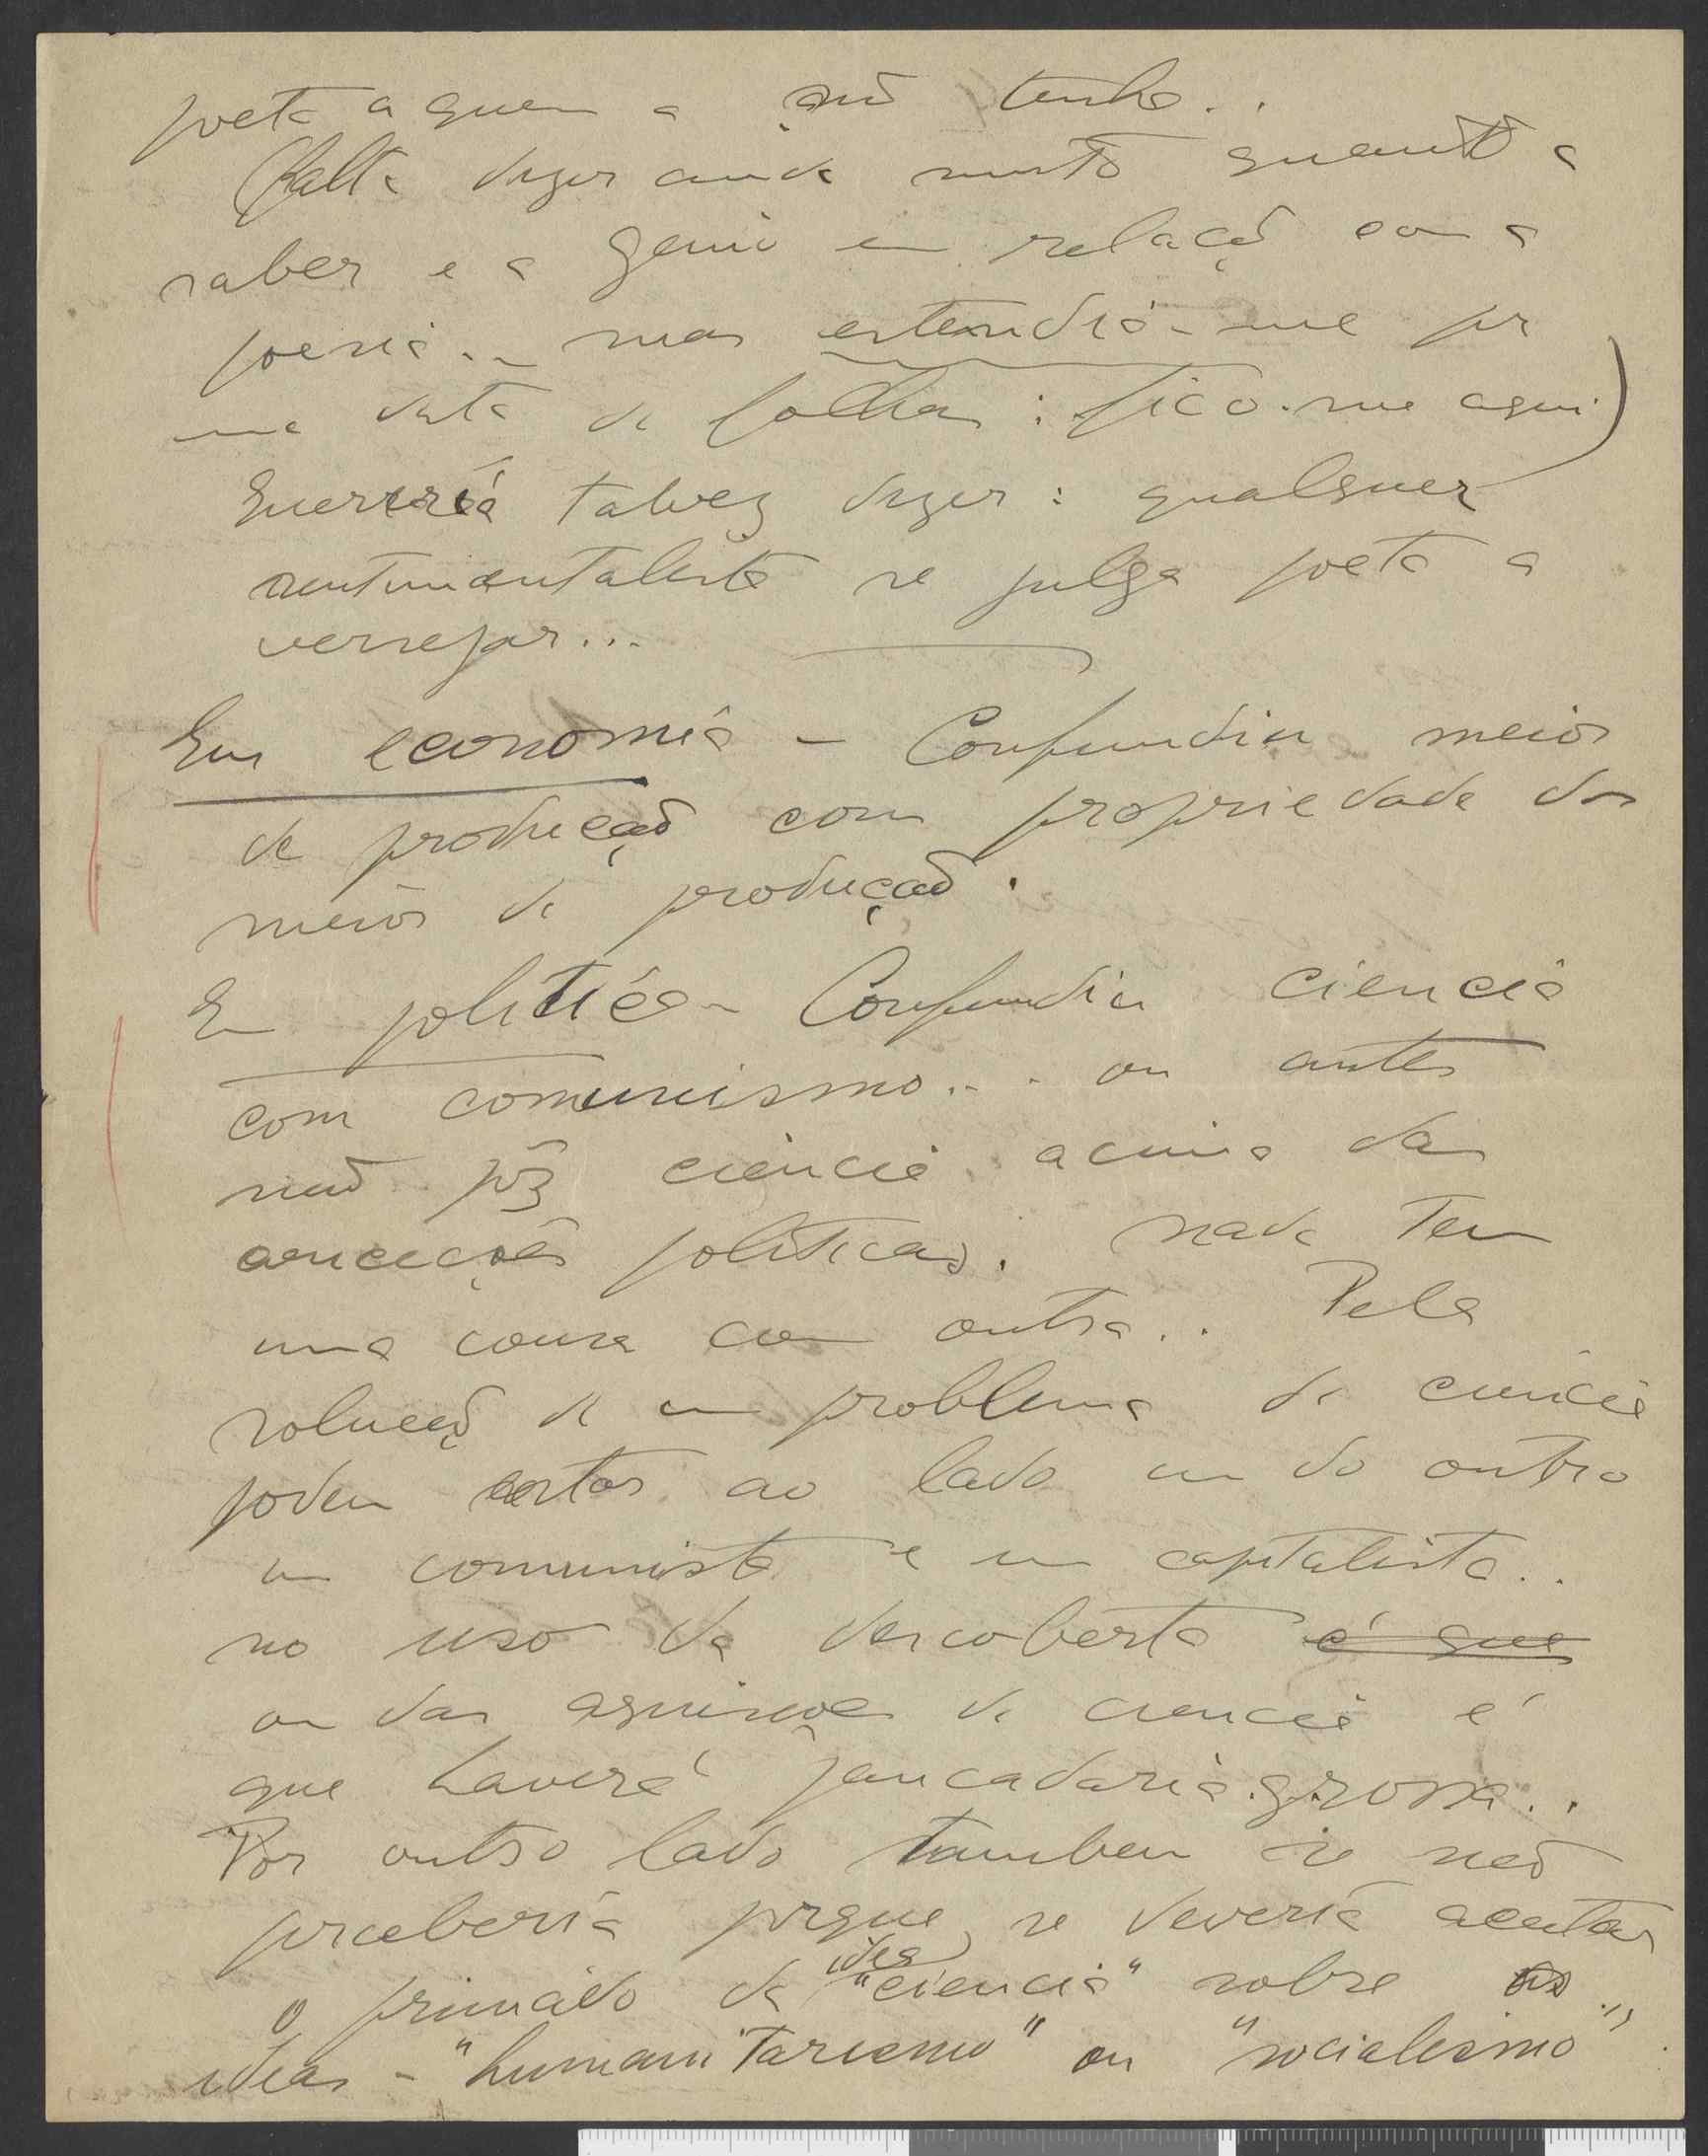 poeta a quem a não tenha..
Falta dizer ainda muito quanto a
saber e a genio em relação com a
poesia... mas estendia-me por
uma data de folhas : fico-me aqui.)
Quereria talvez dizer : qualquer
sentimentalista se julga poeta a
versejar...
Em economia - Confundiu meios
de producção com propriedade dos
meios de producção.
Em politica - Confundiu ciencia
com comunismo... ou antes
não pôz ciencia acima das
politicas. nada tem
uma cousa com outra.. Pela
solução de um problema de ciencia
podem estar ao lado um do outro
um comunista e um capitalista..
no uso da descoberta é que
ou das de ciencia é
que haverá pancadaria grossa..
Por outro lado tambem se não
perceberia porque se deveria aceitar
idea
o primado da "ciencia" sobre as
ideas - "humanitarismo" ou "socialismo"